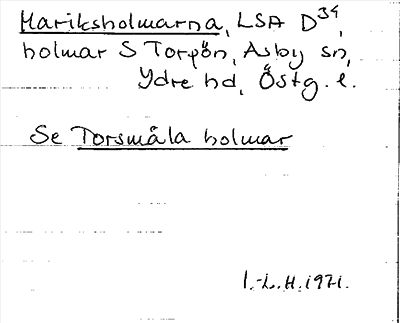 Mariksholmarna, LSA D34,
holmar S Torpön, Asby sn,
Ydre hd, Östg. l.
Se Torsmåla holmar
I.-L.H. 1971.